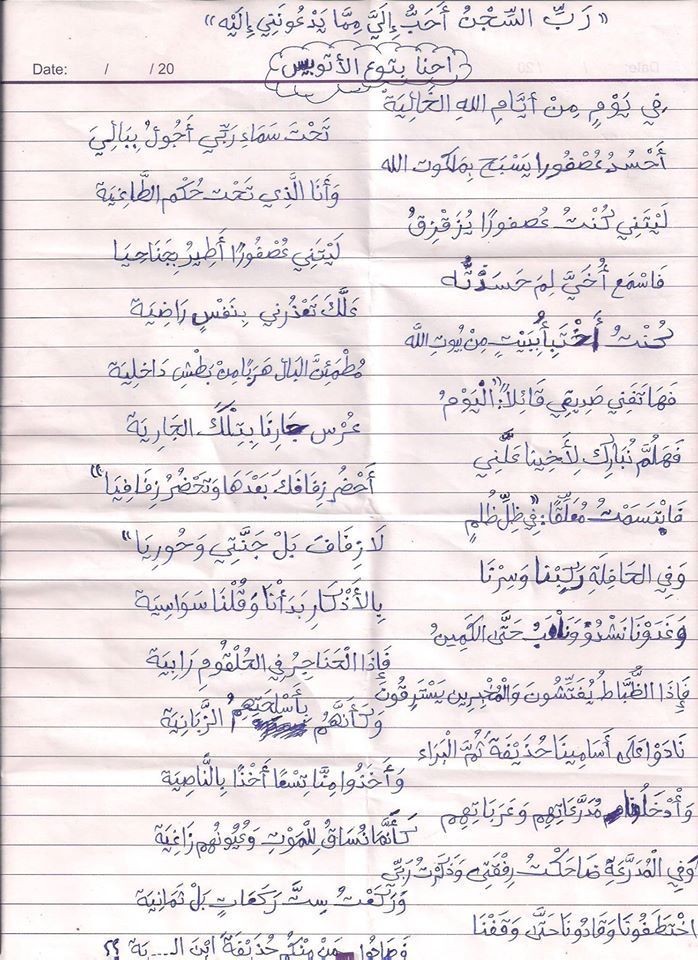 « رَبِّ السِّجْنُ أَحَبُّ إِلَيَّ مِمَّا يَدْعُونَنِي إِلَيْهِ »
Date: / / 20
احنا بتوع الأتوبيس
فِي يَوْمٍ مِنْ أَيَّامِ اللهِ الخَالِيَة
تَحْتَ سَمَاءِ رَبِّي أَجُولُ بِبَالِيَ
أَحْسُدُ عُصْفُورا يَسْبَح بِمَلَكُوت الله
وَأَنَا الَّذِي تَحْتَ حُكْمِ الطَّاغِيَة
لَيْتَنِي كُنْتُ عُصفورًا يُزَقْزِقُ
لَيْتَنِي عُصْفُورًا أَطِيرُ بِجَنَاحِيَا
فَاسْمَع أُخَيَّ لِمَ حَسَدْتُه
عَلَّكَ تَعْذُرنِي بِنَفْسٍ رَاضِيَة
كُنْتُ أَخْتَبأُ بِبَيْتٍ مِنْ بُيُوتِ اللَّه
مُطْمَئِنَّ البَالِ هَرَبًا مِنْ بَطْشِ دَاخِلِيَة
فَهَاتَفَنِي صَدِيقِي قَائِلاً: "الْيَوْمُ
عُرْس جَارِنَا بِتِلْكَ الجَارِيَة
فَهَلُمَّ نُبَارِكُ لِأَخِينَا عَلَّنِي
أَحْضُرُ زِفَافَكَ بَعْدَهَا وَتَحْضُرُ زِفَافِيَا"
فَابْتَسَمْتُ مُعَلِّقًا: "فِي ظِلِّ ظُلمٍ
لَا زِفَافَ بَلْ جَنَّتِي وَحُورِيَا"
وَفِي الحَافِلَةِ رَكِبْنَا وَسِرْنَا
بِالأَذْكَارِ بَدَأْنَا وَقُلْنَا سَوَاسِيَة
وَغَدَوْنَا نَشْدُو وَنَلْعَبُ حَتَّى الكَمِين
فَإِذَا الْحَنَاجِرُ فِي الْحُلْقُومِ رَابِيَة
فَإِذَا الظُّبَّاط يُفَتِّشُونَ وَالْمُخْبِرِين يَسْتَرِقُونَ
وَكَأَنَّهُمُ بِأَسْلِحَتِهِمُ الزَّبَانِيَة
نَادَوْا عَلَى أَسَامِينَا حُذَيْفَةَ ثُمَّ الْبَرَاء
وَأَخَذُوا مِنَّا تِسْعًا أَخْذًا بِالنَّاصِيَة
وَأَدْخَلُونا مُدَرَّعَاتِهِم وَعَرَبَاتِهِم
كَأَنَّمَا نُسَاقُ لِلْمَوْتِ وَعُيُونُهُم زَاغِيَة
وَفِي الْمُدَرَّعَةِ ضَاحَكْتُ رِفْقَتِي وَذَكَرْتُ رَبِّي
وَرَكَعْتُ سِتَّ رَكَعَاتٍ بَلْ ثَمَانِيَة
اخْتَطَفُونَا وَقَادُونَا حَتَّى وَقَفْنَا
وَصَاحُوا مَنْ مِنْكُمْ حُذَيْفَةُ ابْنَ الـ....يَة ؟؟